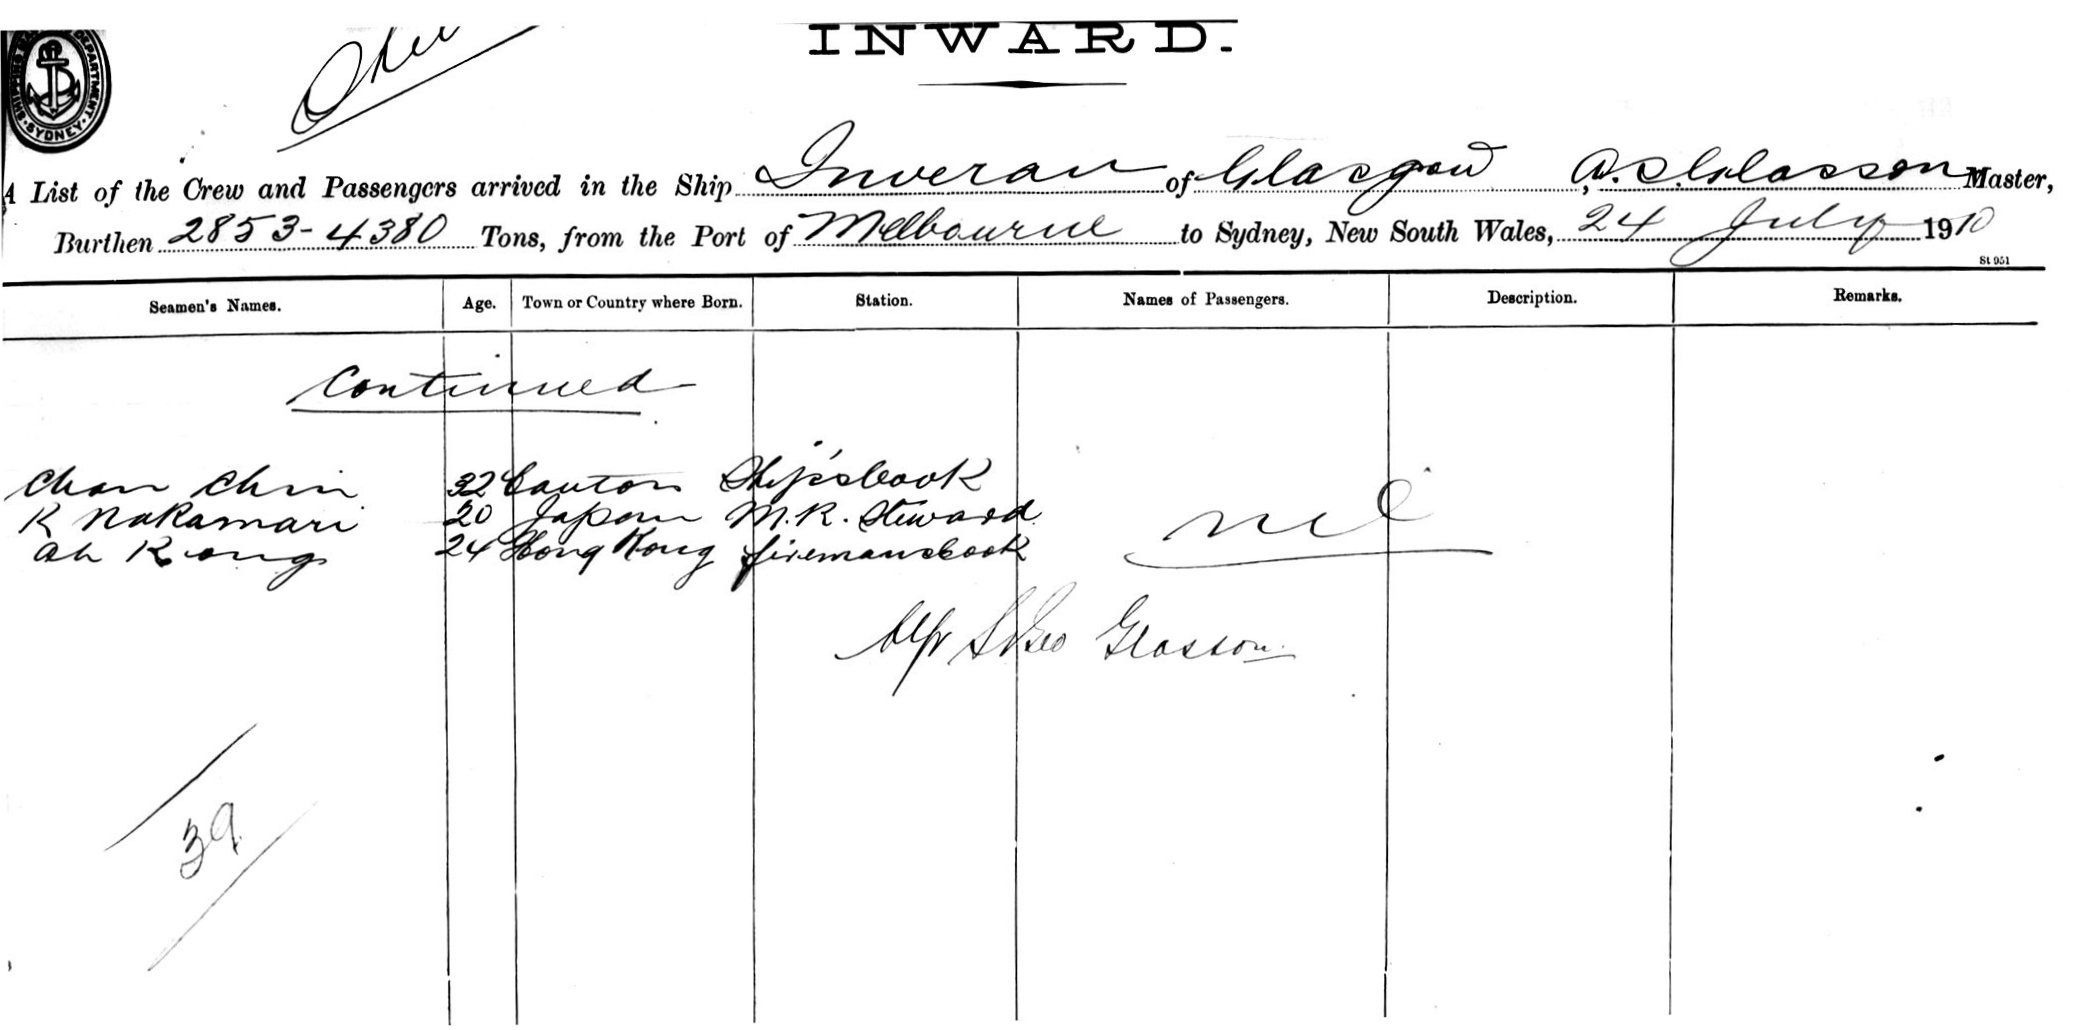 INWARD.
SHIPPING DEPARTMENT SYDNEY
A List of the Crew and Passengers arrived in the Ship Inveran of Glasgow, A. S. Glasson Master,
Burthen 2853-4380 Tons, from the Port of Melbourne to Sydney, New South Wales, 24 July 1910
St 951
Seamen's Names. Age. Town or Country where Born. Station. Names of Passengers. Description. Remarks.
Continued
Chan Chin 32 Canton Ship's Cook
K Nakamari 20 Japan M.R. Steward
Ah Kong 24 Hong Kong firemans cook
nil
Glasson
39